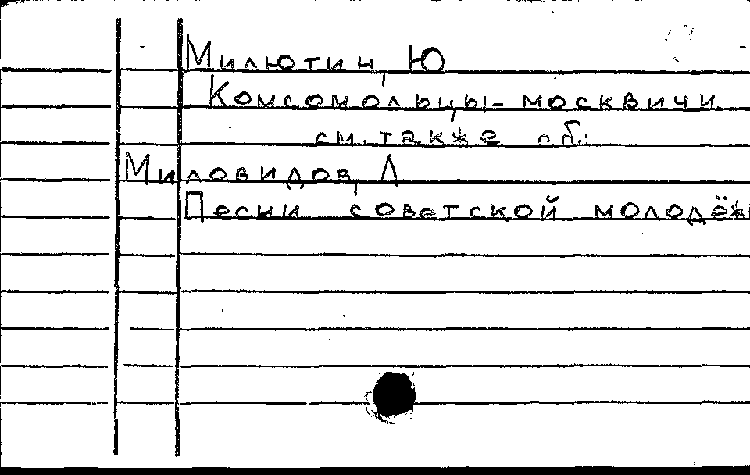 Милютин, Ю
Комсомольцы-москвичи
см. также сб.:
Миловидов, Л
Песни советской молодёж